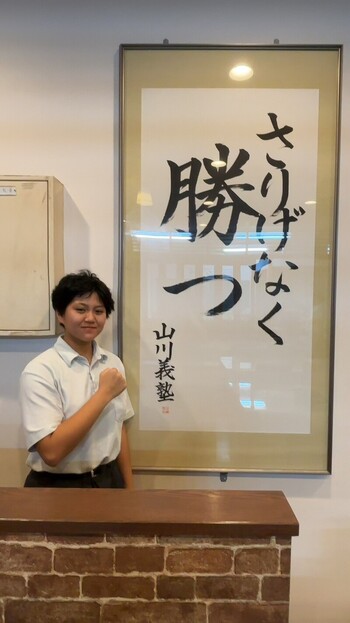 さりげなく
勝つ
山川義塾